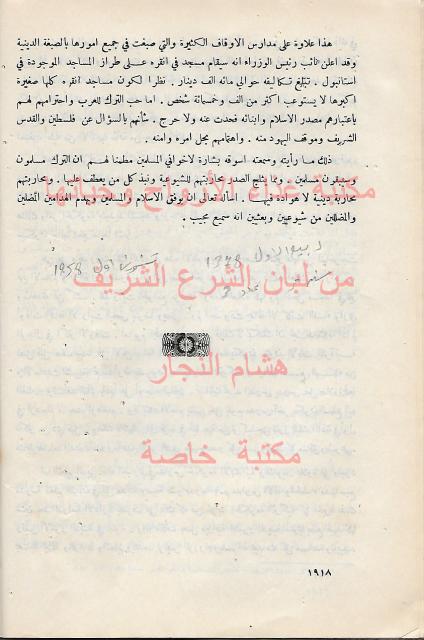 هذا علاوة على مدارس الاوقاف الكثيرة والتي صبغت في جميع امورها بالصبغة الدينية
وقد اعلن نائب رئيس الوزراء انه سيقام مسجد في انقره على طراز المساجد الموجودة في
استانبول . تبلغ تكاليفه حوالي مائه الف دينار . نظرا لكون مساجد انقره كلها صغيرة
اكبرها لا يستوعب اكثر من الف وخمسمائة شخص . اما حب الترك للعرب واحترامهم لهم
باعتبارهم مصدر الاسلام وابنائه فحدث عنه ولا حرج . شأنهم بالسؤال عن فلسطين والقدس
الشريف وموقف اليهود منه . واهتمامهم بحل اموره وامنه .
ذلك ما رأيته وسمعته اسوقه بشارة لاخواني المسلمين مطمئنا لهم ان الترك مسلمون
وسيبقون مسلمين . ومما يثلج الصدر محاربتهم للشيوعية ونبذ كل من يعطف عليها . ومحاربتهم
محاربة دينية لا هوادة فيها . اسأله تعالى ان يوفق الاسلام والمسلمين ويهدم الهدامين المضلين
والمضللين من شيوعيين وبعثيين انه سميع مجيب .
مكتبة غذاء الأرواح وخباتها
ربيع الاول 1378
تشرين اول 1958
عدد 3
من لبان الشرع الشريف
هشام النجار
مكتبة خاصة
١٩١٨